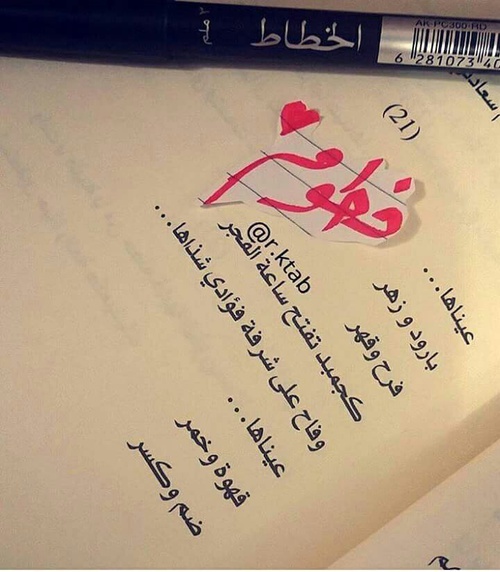 الخطاط
٢ ملم
AK-PC300-RD
6 281073 40
(21)
عيناها...
بارود و زهر
فرح وقهر
@r.ktab
كجميد تفتح ساعة الفجر
وفاح على شرفة فؤادي شذاها...
عيناها...
قهوة وخمر
ضم وكسر